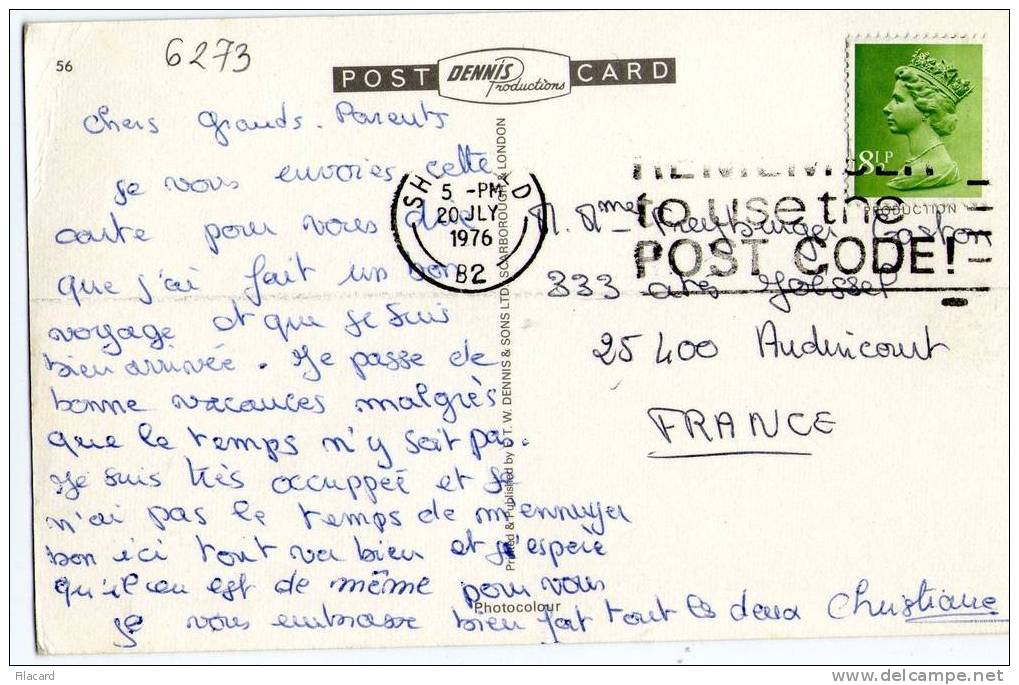 56
6273
POST DENNIS Productions CARD
8½P
REMEMBER
to use the
POST CODE!
PRODUCTION
5 -PM
20 JLY
1976
82
Chers Grands-Parents
Je vous envoies cette
carte pour vous dire
que j'ai fait un bon
voyage et que je suis
bien arrivée. Je passe de
bonne vacances malgrès
que le temps n'y soit pas.
Je suis très occuppée et je
n'ai pas le temps de m'ennuyer
bon ici tout va bien et j'espère
qu'il en est de même pour vous
Je vous embrasse bien fort tout les deux Christiane
M. Mme Gaston
333
25400 Audincourt
FRANCE
Printed & Published by E.T.W. DENNIS & SONS LTD, SCARBOROUGH & LONDON
Photocolour
Filacard
delcampe.net